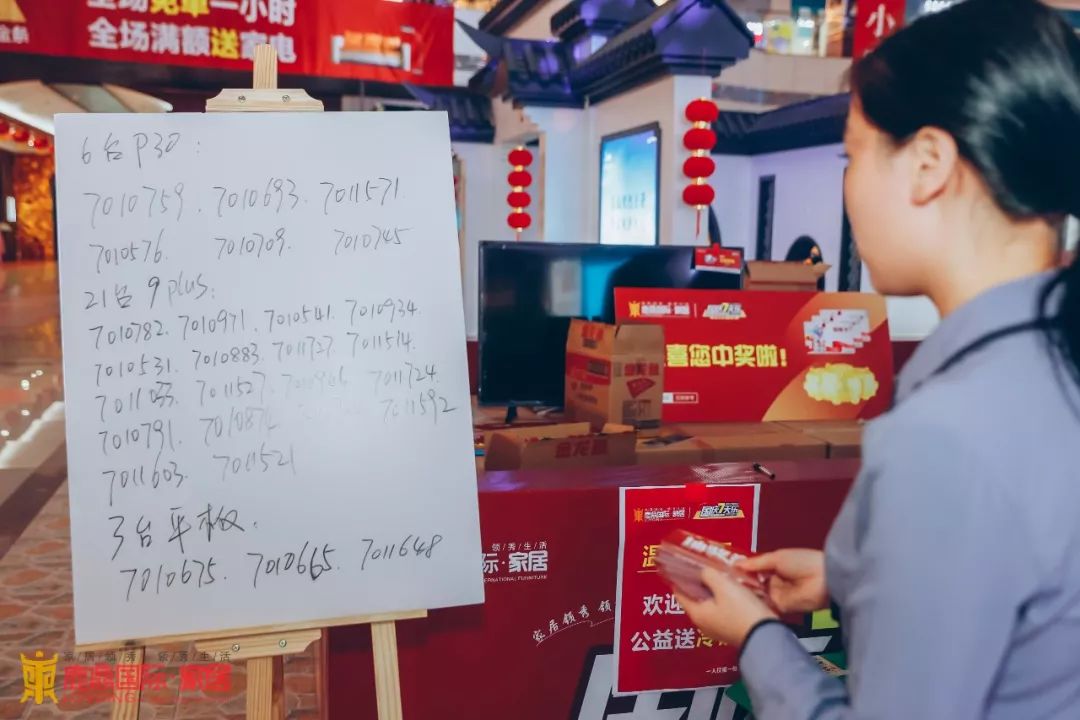 全场免单一小时
全场满额送家电
小
6台P30:
7010759. 7010693. 7011571.
7010576. 7010709. 7010745
21台9plus:
7010782. 7010971. 7010541. 7010934.
7010531. 7010883. 7011727. 7011514.
7011527 7011724.
7010791. 7011592
7011603. 7011521
3台平板.
7010675. 7010665. 7011648
国庆7天乐
喜您中奖啦!
国庆7天乐
欢迎
公益送
一人仅限一
领/秀/生/活
际·家居
INTERNATIONAL FURNITURE
家居领秀 领
家/居/领/秀 领/秀/生/活
国际·家居